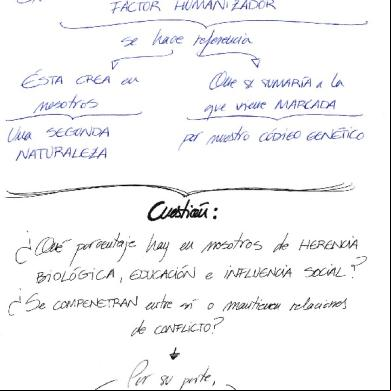 FACTOR HUMANIZADOR
se hace referencia
ÉSTA CREA en
nosotros
Una SEGUNDA
NATURALEZA
Que se SUMARÍA a la
que viene MARCADA
por nuestro CÓDIGO GENÉTICO
Cuestión:
¿Qué porcentaje hay en nosotros de HERENCIA
BIOLÓGICA, EDUCACIÓN e INFLUENCIA SOCIAL?
¿Se COMPENETRAN entre sí o mantienen relaciones
de CONFLICTO?
Por su parte,